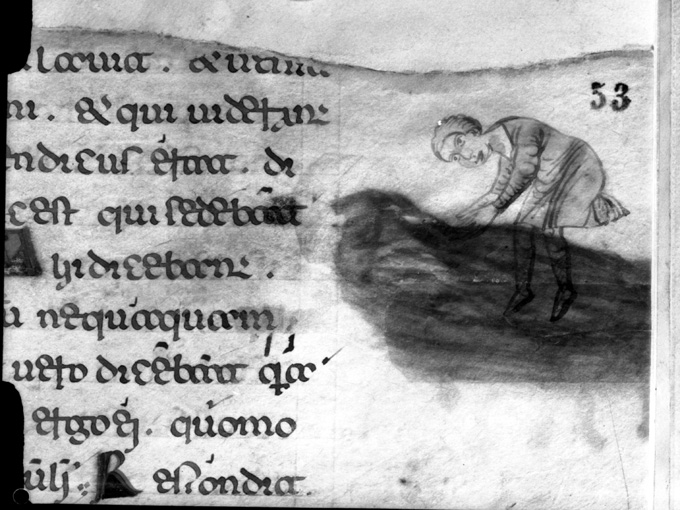 & uicini
& qui uiderant
ndicus erat. di
est qui sedebat
Alii dicebant .
nequaquam
uero dicebat q̄a
ergo ei. quomo
Respondit.
53